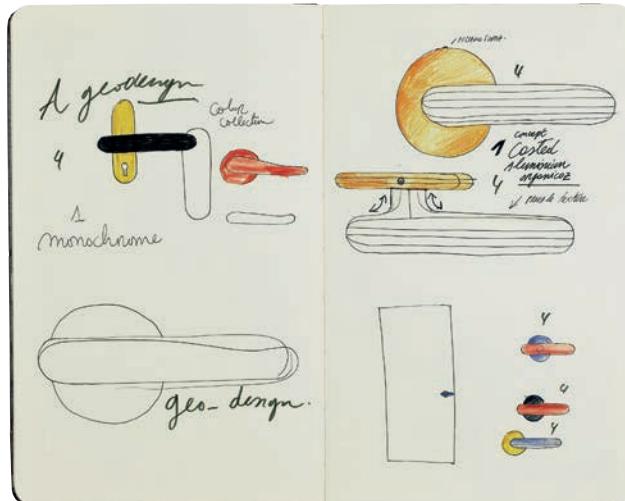 A geodesign
Color
collection
4
1
monochrome
geo-design.
4
concept
1 Casted
aluminium
organicoz
4
4
4
4